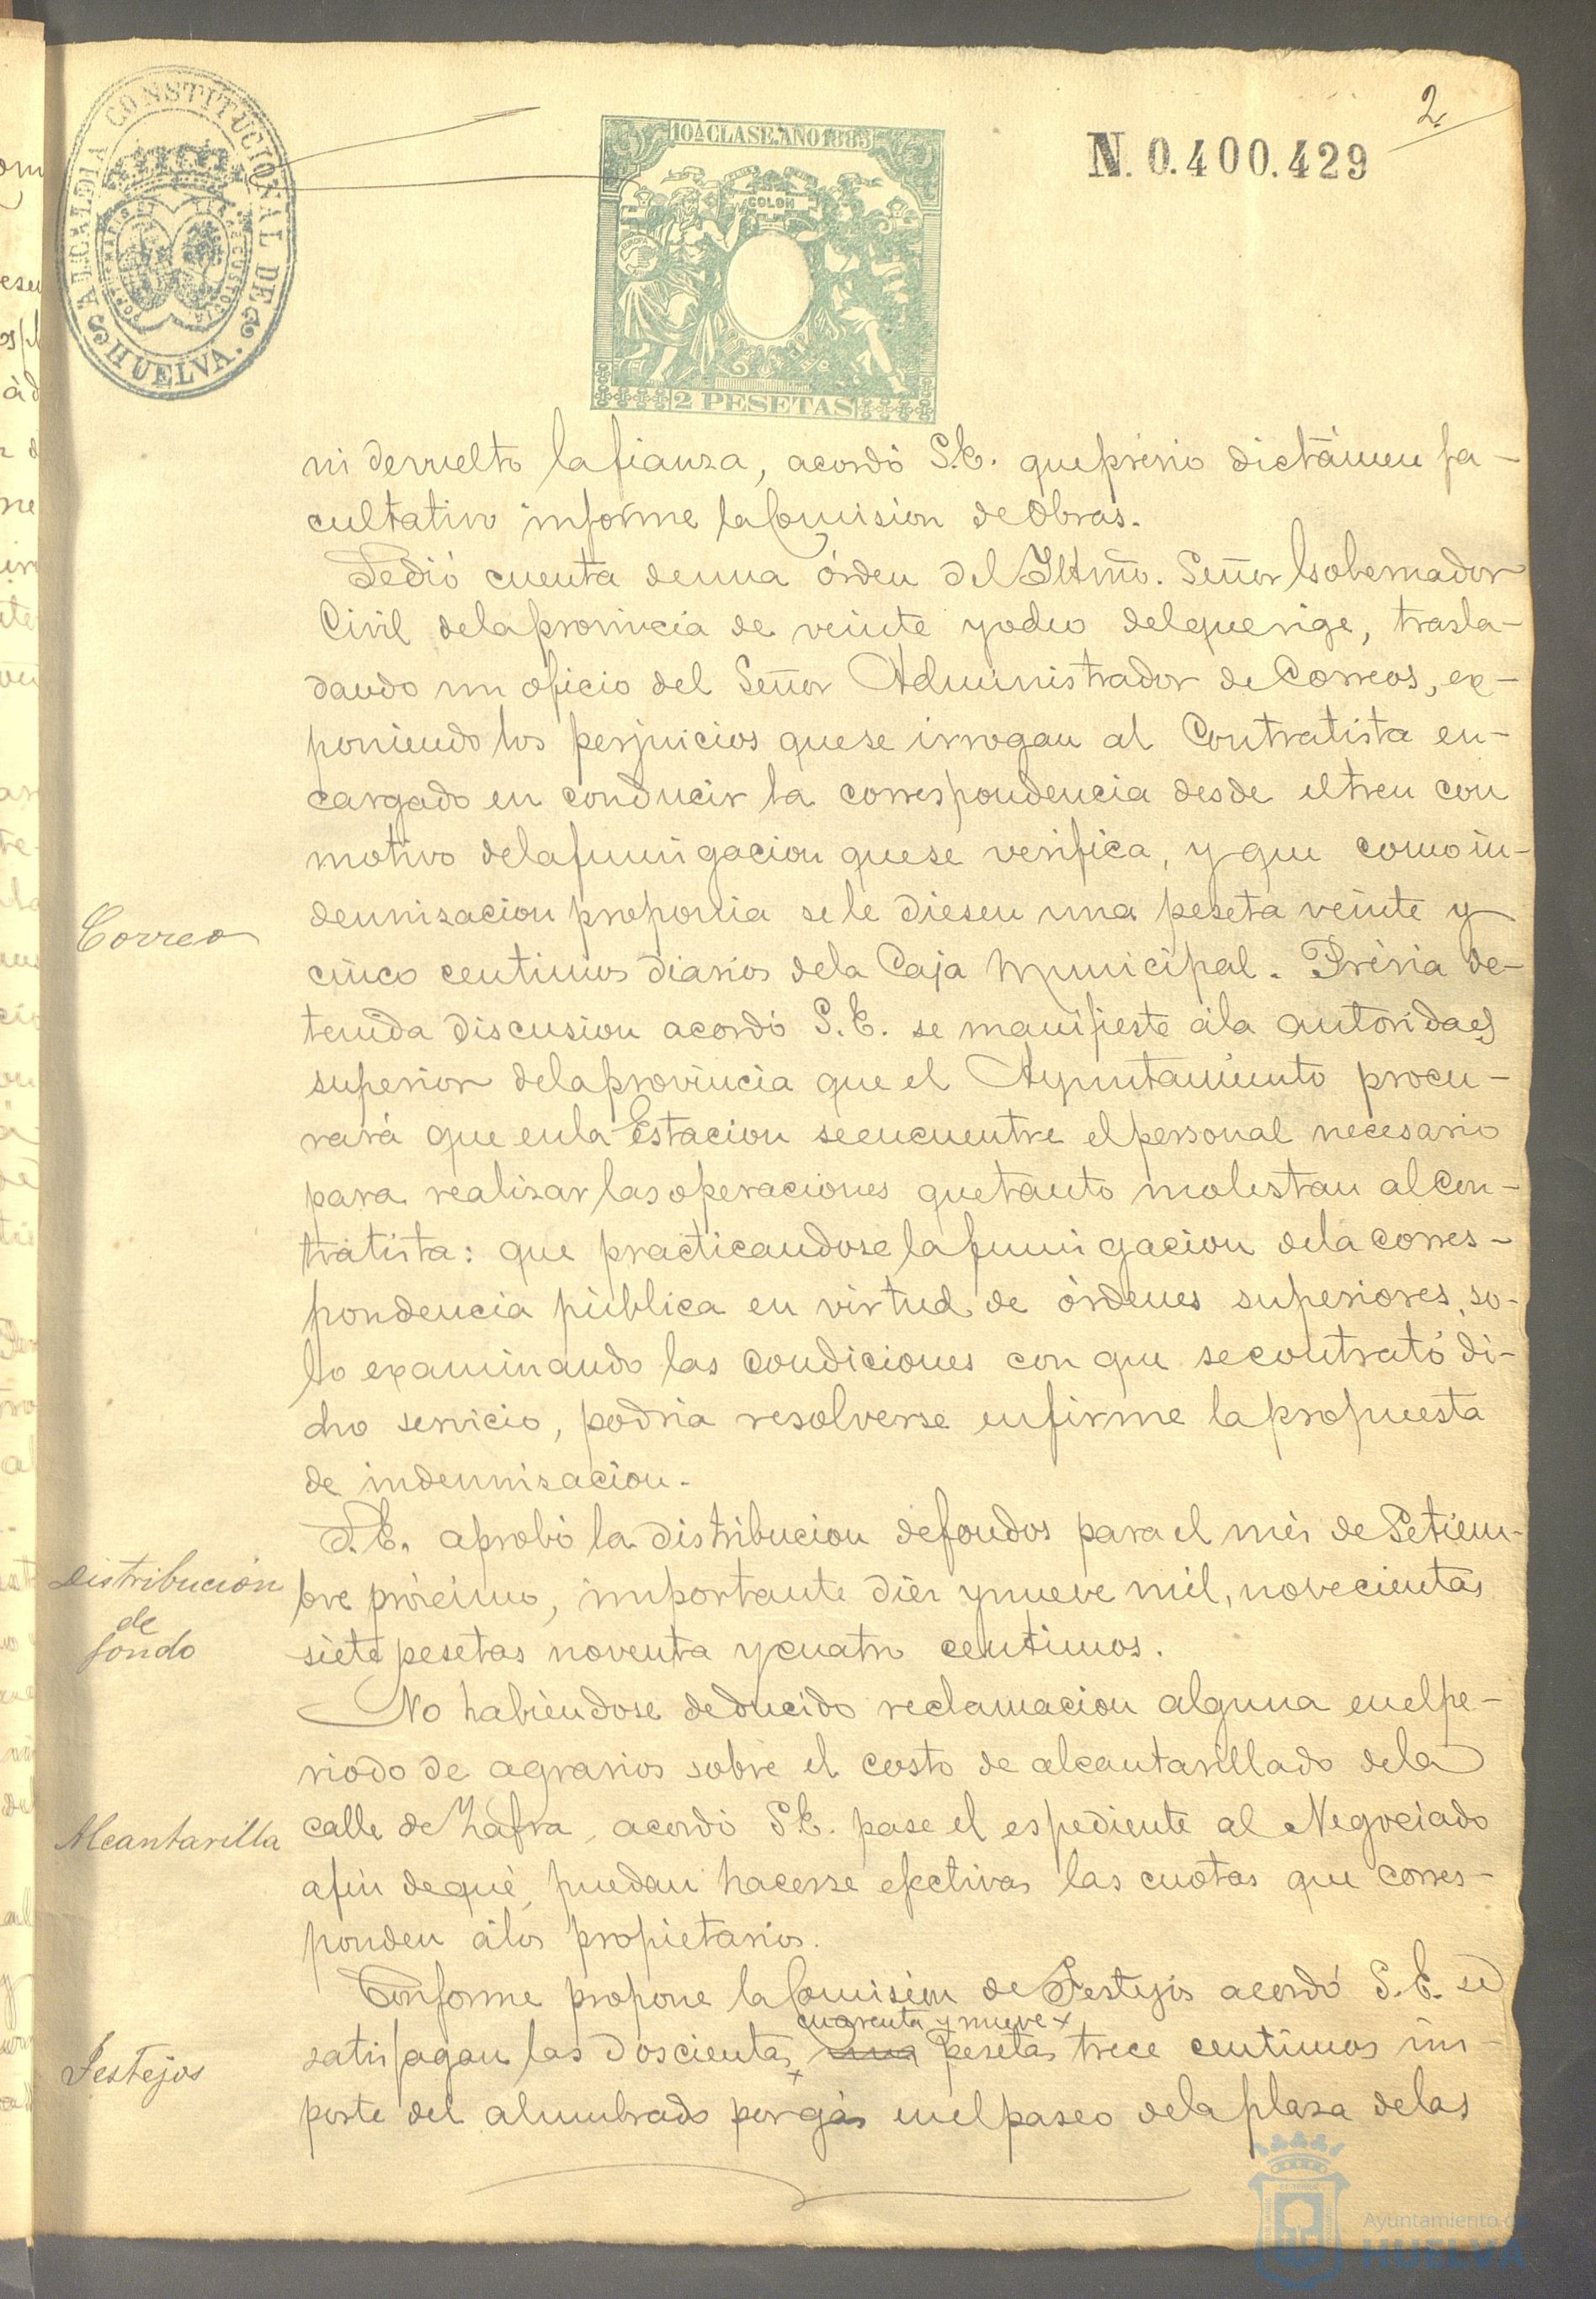 2
N. 0.400.429
ALCALDIA CONSTITUCIONAL DE HUELVA.
10ª CLASE. AÑO 1885
COLON
EUROPA
2 PESETAS
ni devuelto la fianza, acordó S.E. que prévio dictámen fa-
cultativo informe la Comision de Obras.
Se dió cuenta de una órden del Iltmo. Señor Gobernador
Civil de la provincia de veinte y ocho del que rige, trasla-
dando un oficio del Señor Administrador de Correos, ex-
poniendo los perjuicios que se irrogan al Contratista en-
cargado en conducir la correspondencia desde el tren con
motivo de la fumigacion que se verifica, y que como in-
Correo
demnisacion proponia se le diesen una peseta veinte y
cinco centimos diarios de la Caja Municipal. Prévia de-
tenida discusion acordó S.E. se manifieste á la autoridad
superior de la provincia que el Ayuntamiento procu-
rará que en la Estacion se encuentre el personal necesario
para realisar las operaciones que tanto molestan al con-
tratista: que practicandose la fumigacion de la corres-
pondencia pública en virtud de órdenes superiores, so-
lo examinando las condiciones con que se contrató di-
cho servicio, podria resolverse en firme la propuesta
de indemnisacion.
S.E. aprobó la distribucion de fondos para el més de Setiem-
Distribución
de
fondo
bre próximo, importante diez y nueve mil, novecientas
siete pesetas noventa y cuatro centimos.
No habiéndose deducido reclamacion alguna en el pe-
riodo de agravios sobre el costo de alcantarillado de la
Alcantarilla
calle de Zafra, acordó S.E. pase el espediente al Negociado
afin de que, puedan hacerse efectivas las cuotas que corres-
ponden á los propietarios.
Conforme propone la Comision de Festejos acordó S.E. se
cuarenta y nueve x
Festejos
satisfagan las doscientas x una pesetas trece centimos im-
porte del alumbrado por gás en el paseo de la plaza de las
Ayuntamiento de
HUELVA